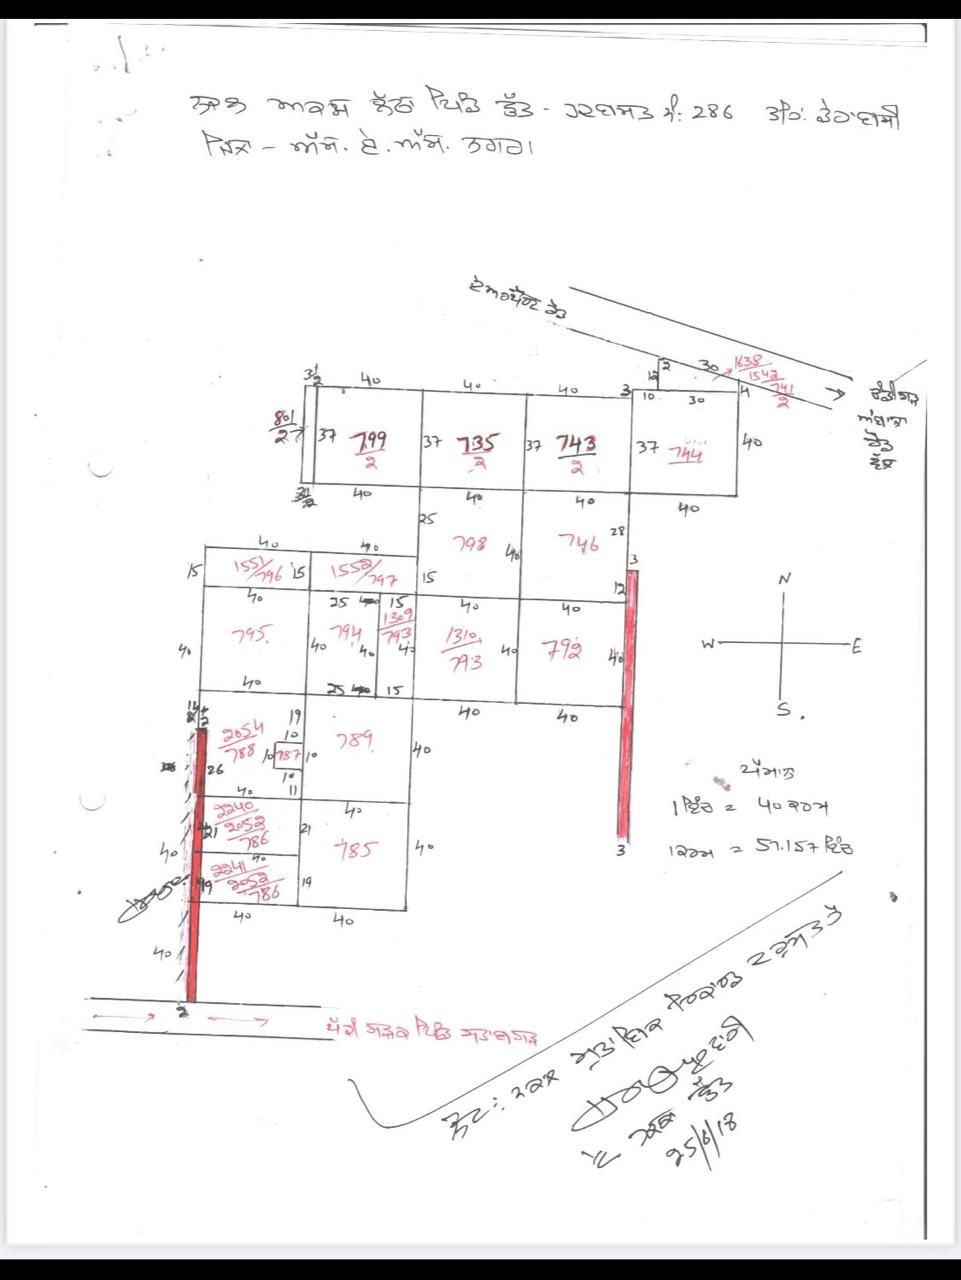 ਨਕਲ ਅਕਸ ਲੱਠਾ ਪਿੰਡ ਛੱਤ - ਹਦਬਸਤ ਨੰ: 286 ਤਹਿ: ਡੇਰਾਬਸੀ
ਜਿਲਾ - ਐੱਸ. ਏ. ਐੱਸ. ਨਗਰ।
ਏਅਰਪੋਰਟ ਰੋਡ
2
30
1638
1542
741
2
12
10
30
4
ਚੰਡੀਗੜ
ਅੰਬਾਲਾ
ਰੋਡ
40
40
40
3
801
2
37
799
2
37
735
2
37
743
2
37
744
40
40
40
40
40
25
798
40
746
28
3
40
40
15
1551/796
15
1552/797
15
12
40
25
15
40
40
N
40
795
40
794
40
1309
793
40
1310
793
40
792
40
W
E
S.
40
25
15
40
40
2054
788
19
10
10
787
10
10
11
789
40
26
40
40
2240
2052
786
21
21
785
40
40
40
2241
2052
786
19
19
40
40
40
2
3
ਪੈਮਾਨਾ
1 ਇੰਚ = 40 ਕਰਮ
1 ਕਰਮ = 57.157 ਇੰਚ
ਪੱਕੀ ਸੜਕ ਪਿੰਡ
ਨੋਟ: ਨਕਲ ਮੁਤਾਬਿਕ ਰਿਕਾਰਡ ਦਰੁਸਤ ਹੈ
ਪਟਵਾਰੀ
ਛੱਤ
25/6/18